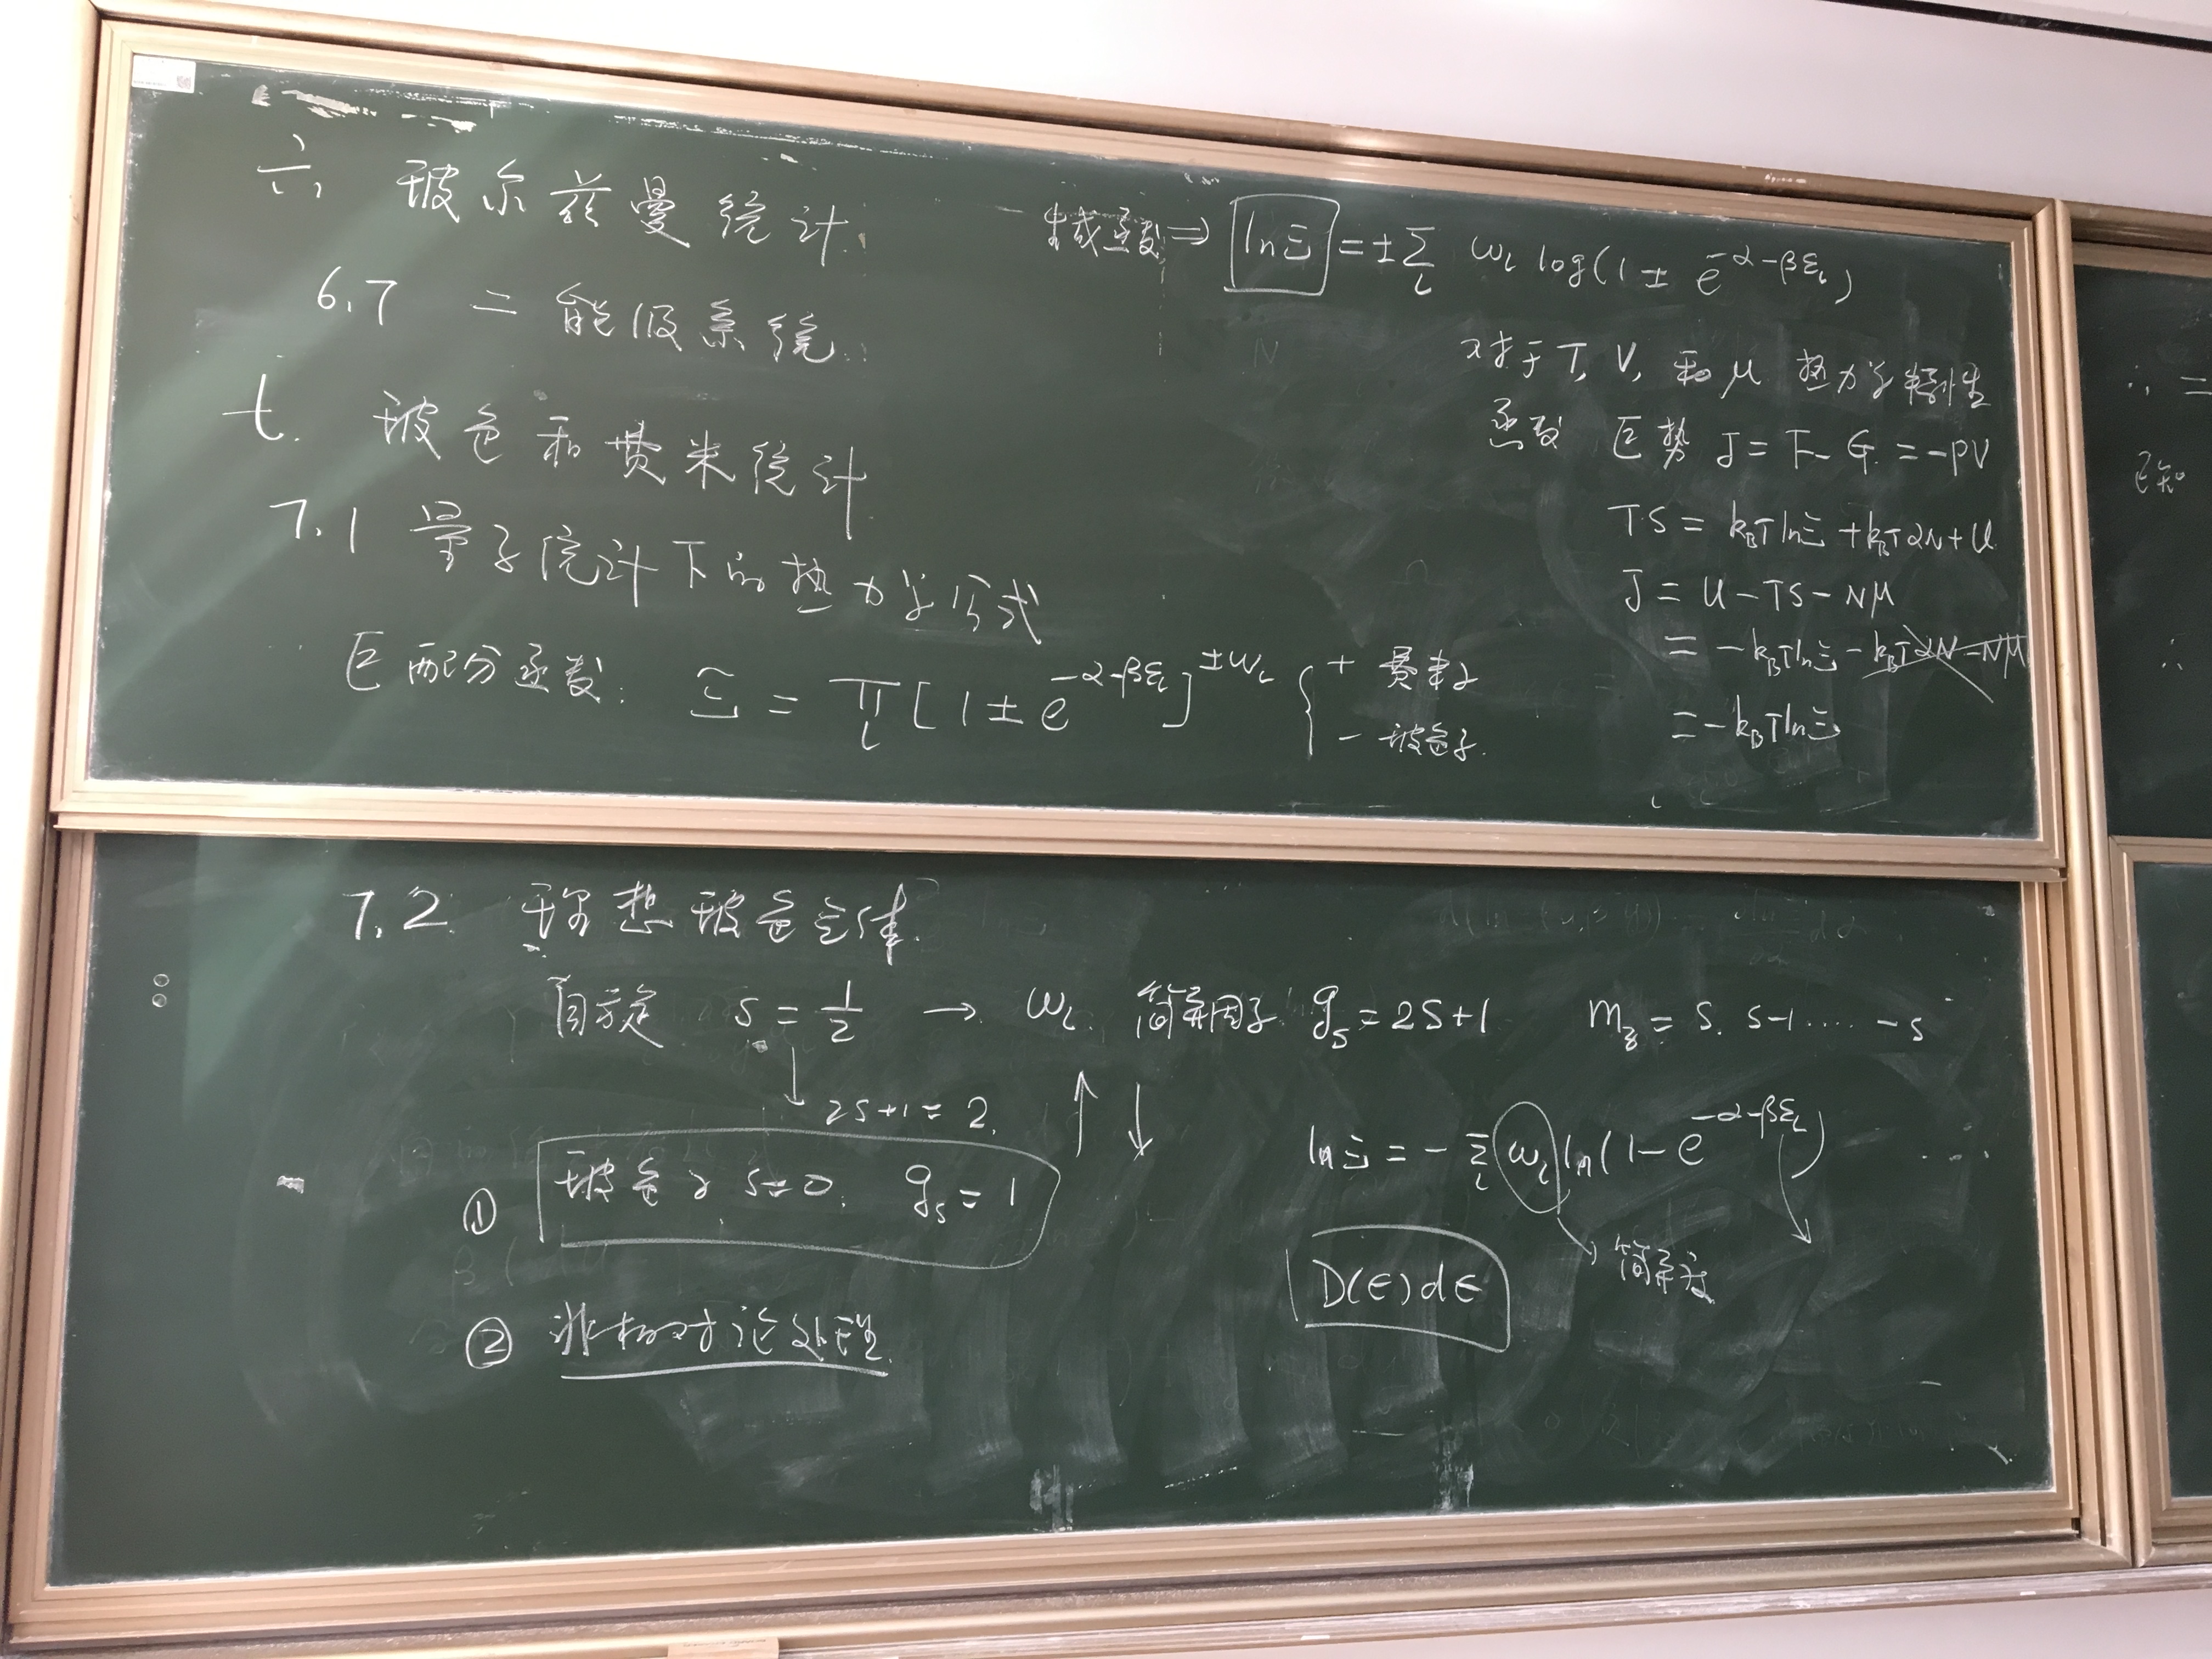 六、玻尔兹曼统计
6.7 二能级系统
七. 玻色和费米统计
7.1 量子统计下的热力学公式
巨配分函数: Ξ = ∏_l [1 ± e^{-α-βε_l}]^{±ω_l} { + 费米子
- 玻色子.
生成函数 ⇒ lnΞ = ± Σ_l ω_l log(1 ± e^{-α-βε_l})
对于 T, V, 和 μ 热力学特性
函数 巨势 J = F - G = -PV
TS = k_BT lnΞ + k_BTαN + U
J = U - TS - Nμ
= -k_BT lnΞ - k_BTαN - Nμ
= -k_BT lnΞ
7.2 理想玻色气体.
自旋 s = 1/2 → ω_l 简并因子 g_s = 2S+1 m_z = s. s-1 ..... -s
↓ 2s+1 = 2. ↑ ↓
lnΞ = - Σ_l ω_l ln(1 - e^{-α-βε_l})
① 玻色子 s=0. g_s = 1
→ 简并度
D(ε)dε
② 非相对论处理.
∴ =
已知
∴